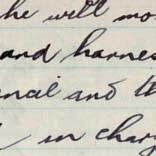 he will mo
and harnes
ncil and th
in charg